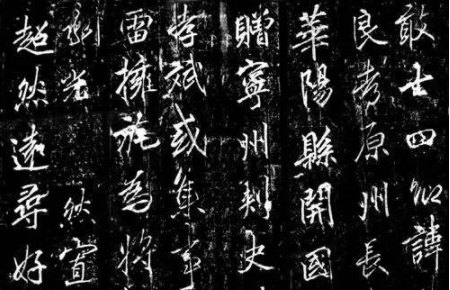 敢士四諱
良考原州長
華陽縣開國
贈寧州刺史
孝斌或集事
雷擁旄為將
光然
超然遠尋好